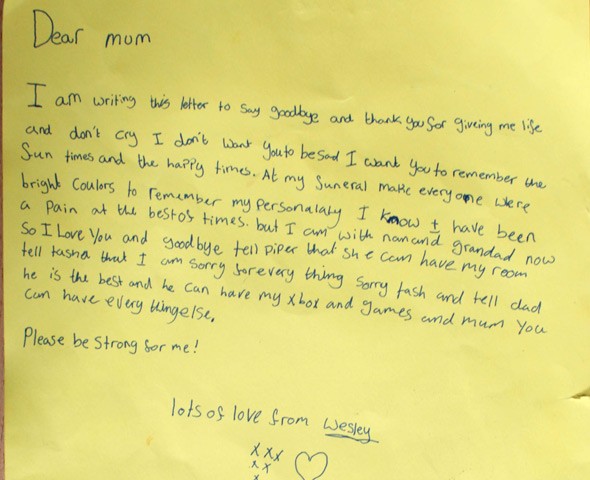 Dear mum
I am writing this letter to say goodbye and thank you for giveing me life
and don't cry I don't want you to be sad I want you to remember the
fun times and the happy times. At my funeral make everyone were
bright coulors to remember my personalaty I know I have been
a pain at the best of times. but I am with nan and grandad now
So I Love You and goodbye tell piper that she can have my room
tell tasha that I am sorry for every thing sorry tash and tell dad
he is the best and he can have my xbox and games and mum You
can have every thing else.
Please be strong for me!
lots of love from Wesley
xxx
xx
x